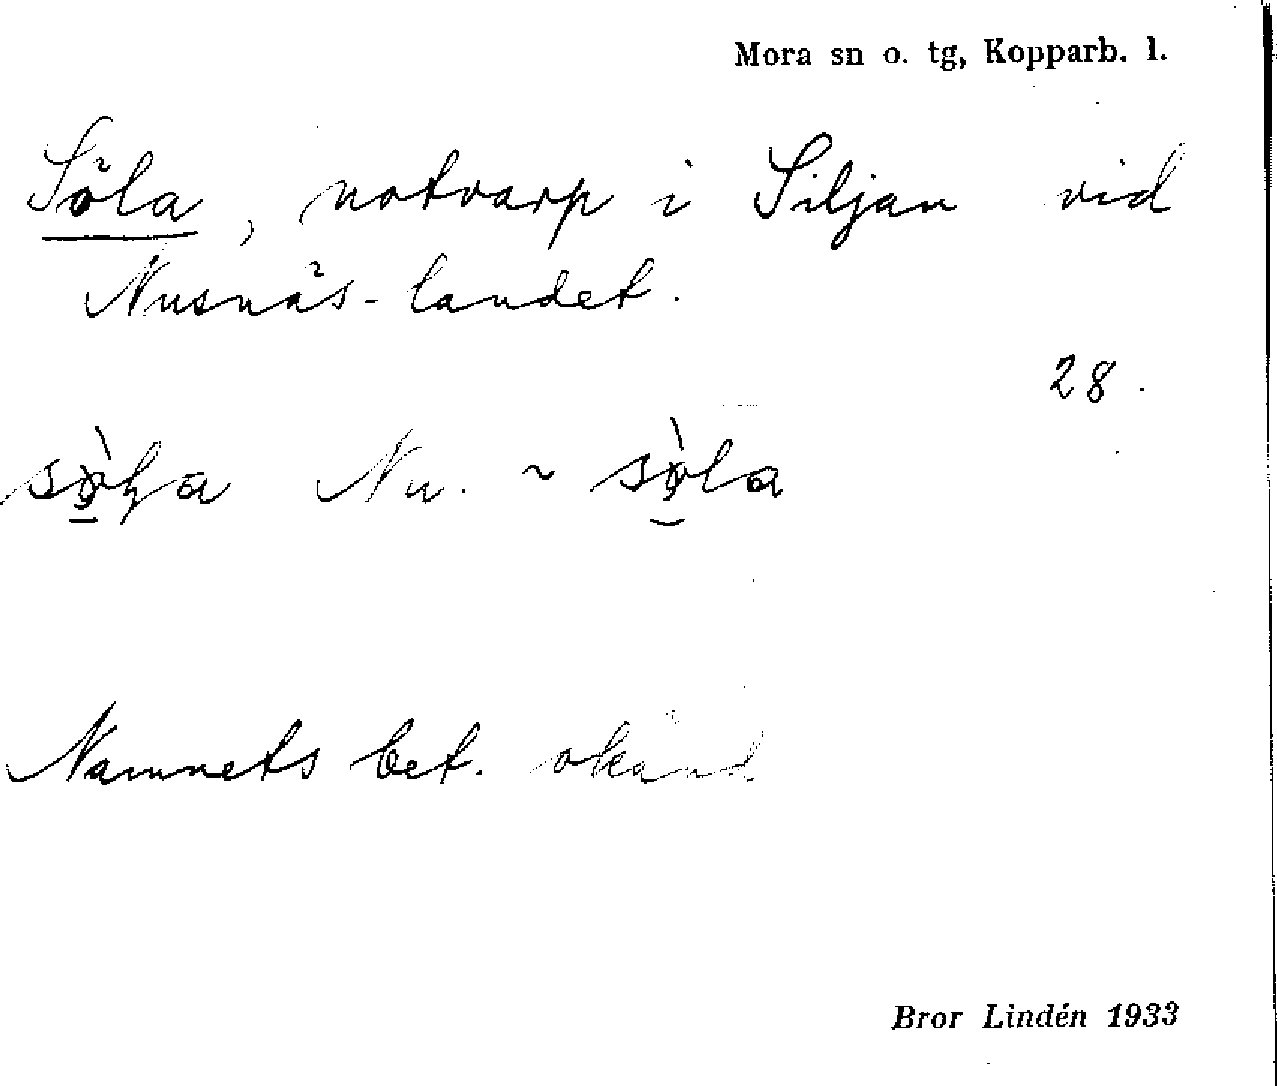 Mora sn o. tg, Kopparb. l.
Söla, notvarp i Siljan vid
Nusnäs-landet.
28.
Nu. ~
Namnets bet. okänd
Bror Lindén 1933